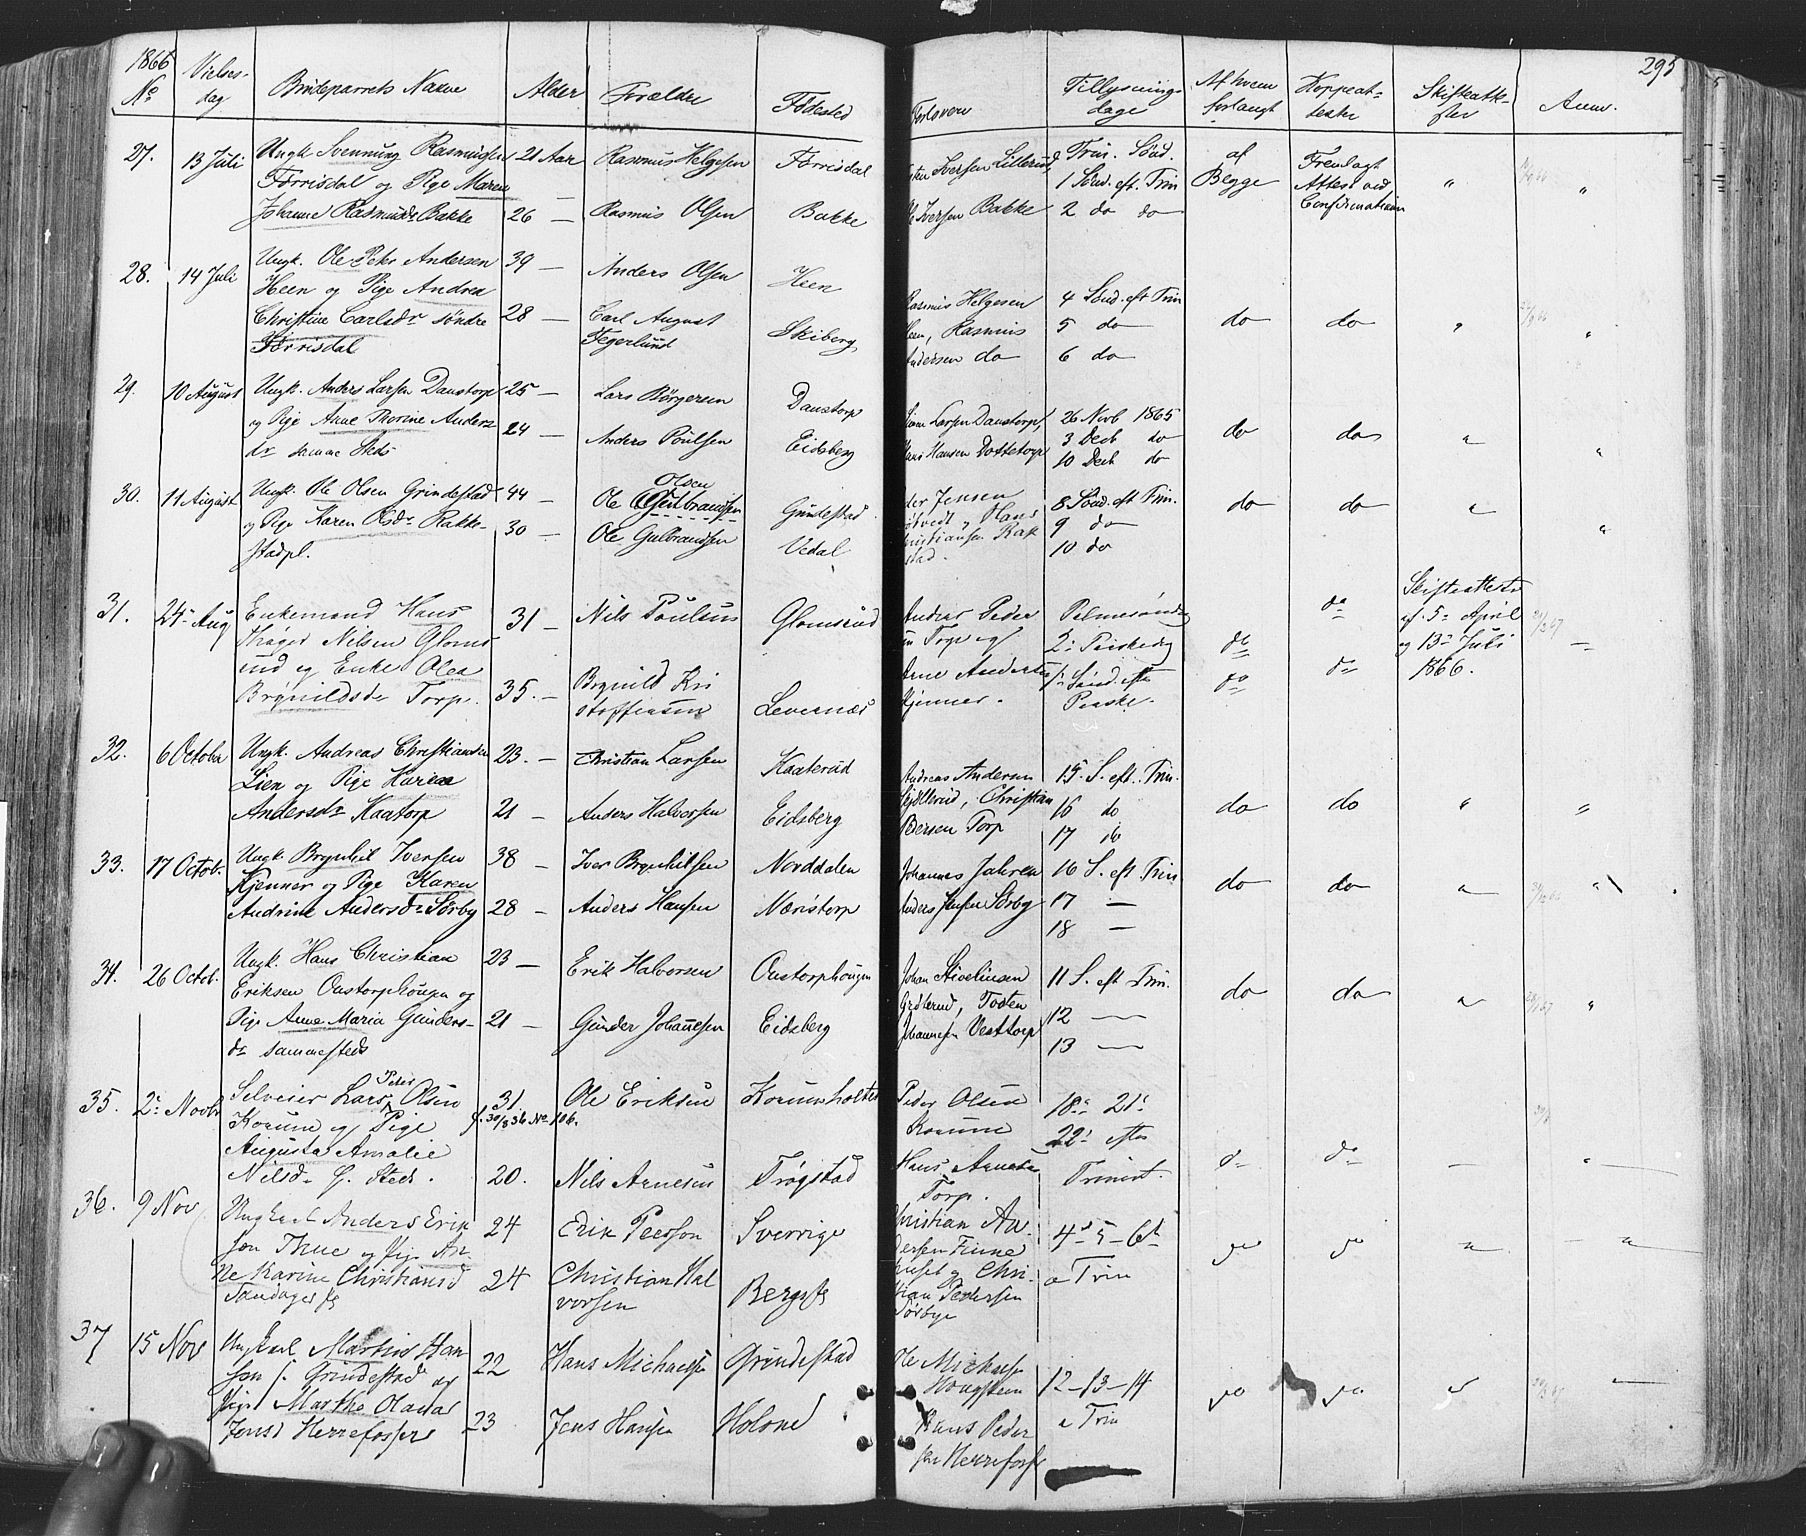 1866
295
No
Vielses-
dag
Brudeparrets Navne
Alder
Forældre
Fødested
Forlovere
Tillysnings
dage
Af hvem
forlangt
Koppeat-
tester
Skifteatte-
ster
Anm.
27. 13 Juli Ungk Svennung Rasmussen 21 Aar Rasmus Helgesen Førrisdal Iversen Lillerud, Trin. Sønd. af Fremlagt
Førrisdal og Pige Maren 1 Sønd. eft. Trin Begge Attest ved " "
Johanne Rasmusdr Bakke 26 — Rasmus Olsen Bakke Iversen Bakke 2 do do Confirmationen
28. 14 Juli Ungk. Ole Peter Andersen 39 — Anders Olsen Heen
Heen og Pige Andrea Rasmus Helgesen 4 Sønd. eft Trin
Christine Carlsdr søndre 28 — Carl August Skiberg Heen, Rasmus 5 do do do " "
Førrisdal Tegerlund Andersen do 6 do
29. 10 August Ungk. Anders Larsen Danstorp 25 — Lars Børgersen Danstorp Larsen Danstorp, 26 Novb 1865
og Pige Anne Thorine Anders 24 — Anders Poulsen Eidsberg Hansen Dottetorp 3 Decb do do do " "
dr samme Steds 10 Decb do
30. 11 August Ungk. Ole Olsen Grindestad 44 — Ole Olsen Gulbrandsen Grindestad Jensen 8 Sønd. eft Trin. do do " "
og Pige Karen Olsdr Rakke- 30 — Ole Gulbrandsen Vedal Hans 9 do
stadpl. Christiansen Rak 10 do
stad.
31. 24de Aug Enkemand Hans 31 — Nils Poulsen Glomsrud Andreas Peder Palmesøndag do Skifteattester
Thøger Nilsen Gloms Torp og 2: Paaskedag do af 5te April
rud og Enke Olea Arne Anders 1ste Sønd. efter do do og 13de Juli —
Brynildsdr Torp. 35. — Brynild Kri Levernæs Kjenner. Paaske. 1866.
stoffersen
32. 6 October Ungk. Andreas Christiansen 23. — Christian Larsen Kaaterud Andreas Andersen 15. S. eft. Trin.
Lien og Pige Karen Christian 16 do do do " "
Andersdr Kaatorp 21 — Anders Halvorsen Eidsberg Pedersen Torp 17 do
33. 17 Octob. Ungk. Brynhil Iversen 38 — Iver Brynhilsen Norddalen Johannes Jahren 16 S. eft Trin
Kjenner og Pige Karen do do " "
Andrine Andersdr Sørby 28 — Anders Hansen Næristorp Anders Jensen Sørby 17 —
18 —
34. 26 Octob. Ungk. Hans Christian 23 — Erik Halvorsen Oustorphougen Johan Stivelinsen 11 S. eft Trin.
Eriksen Oustorphougen og Tosten do do " "
Pige Anne Maria Gunders- 21 — Gunder Johannesen Eidsberg Johannesen Vesttorp 12 —
dr sammesteds 13 —
35. 2: Novbr Selveier Lars Peter Olsen 31. Ole Eriksen Korumholtet Peder Olsen 18de 21:
Korume og Pige f. 30/8 36 No 106. Korume 22: efter
Augusta Amalie Hans Arnesen Trinit. do do — "
Nilsdr G. Sted. 20. Nils Arnesen Trøgstad Torp.
36. 9 Nov Ungkarl Anders Erik 24 Erik Peerson Sverrige Christian An 4-5-6te
son Thue og Pige An dersen Finne a Trin do do " "
ne Karine Christiansd 24 Christian Hal Bergsfs og Chri
vorsen stian Pedersen
Sørbye
37 15 Nov Ungkarl Martin Han 22 Hans Michaelsen Grindestad Ole Michaelsen 12-13-14
sen f. Grindestad og Hougsteen a Trin do do " —
Pige Marthe Olava 23 Jens Hansen Holone Hans Peder
Jensd Herrefosser sen Herrefoss